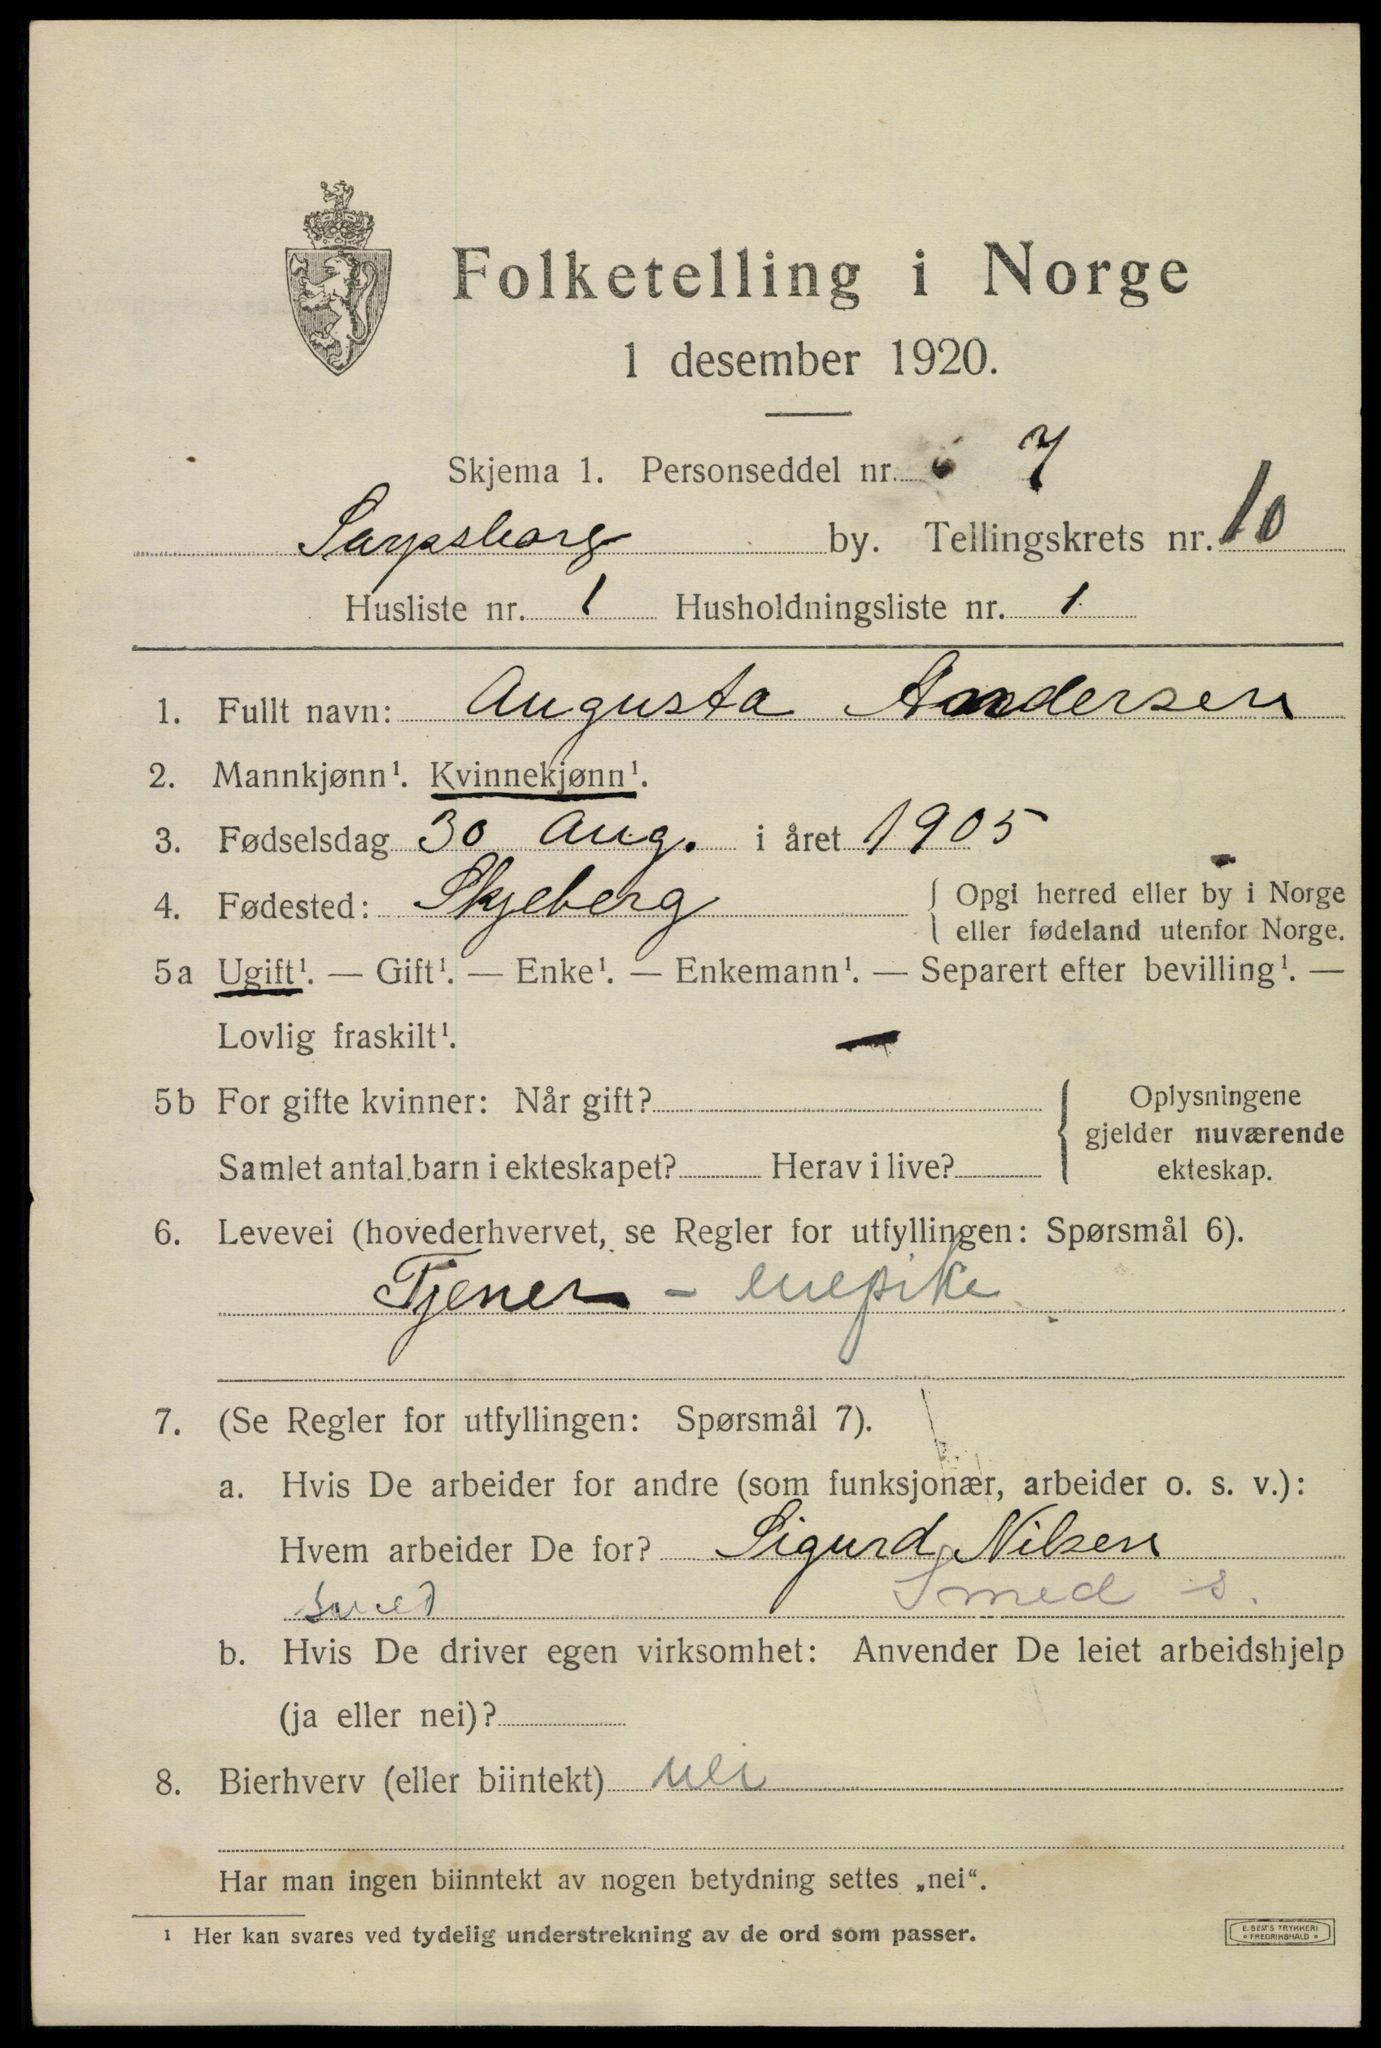 Folketelling i Norge
1 desember 1920.
Skjema 1. Personseddel nr. 7
Sarpsborg by. Tellingskrets nr. 10
Husliste nr. 1 Husholdningsliste nr. 1
1. Fullt navn: Augusta Andersen
2. Mannkjønn¹. Kvinnekjønn¹.
3. Fødselsdag 30 Aug. i året 1905
4. Fødested: Skjeberg { Opgi herred eller by i Norge
eller fødeland utenfor Norge.
5a Ugift¹. — Gift¹. — Enke¹. — Enkemann¹. — Separert efter bevilling¹. —
Lovlig fraskilt¹.
5b For gifte kvinner: Når gift? { Oplysningene
gjelder nuværende
Samlet antal barn i ekteskapet? Herav i live? ekteskap.
6. Levevei (hovederhvervet, se Regler for utfyllingen: Spørsmål 6).
Tjener - enepike
7. (Se Regler for utfyllingen: Spørsmål 7).
a. Hvis De arbeider for andre (som funksjonær, arbeider o. s. v.):
Hvem arbeider De for? Sigurd Nilsen
smed Smed s.
b. Hvis De driver egen virksomhet: Anvender De leiet arbeidshjelp
(ja eller nei)?
8. Bierhverv (eller biintekt) nei
Har man ingen biinntekt av nogen betydning settes „nei“.
¹ Her kan svares ved tydelig understrekning av de ord som passer.
E. SEM'S TRYKKERI
• FREDRIKSHALD •